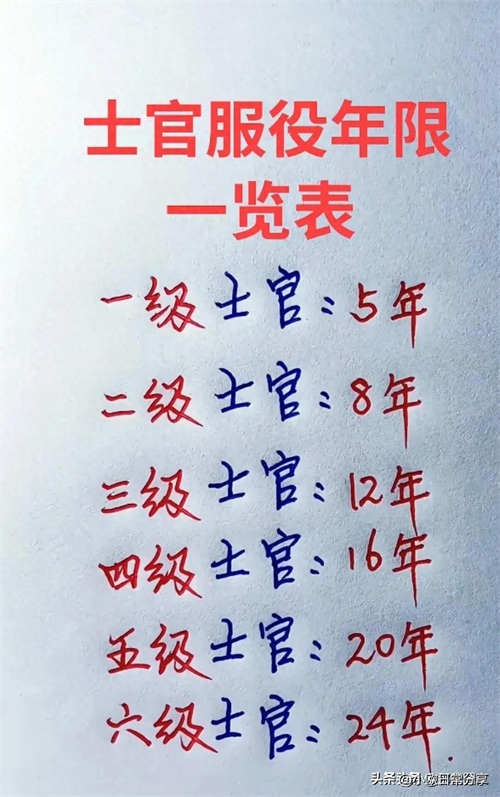 士官服役年限
一览表
一级士官：5年
二级士官：8年
三级士官：12年
四级士官：16年
五级士官：20年
六级士官：24年.